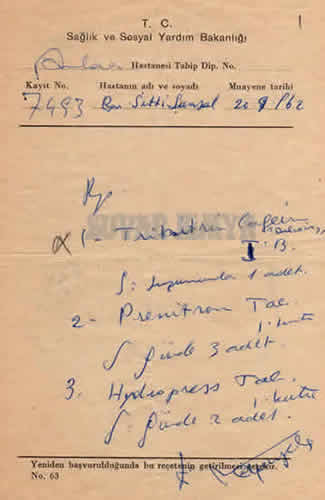 T. C.
Sağlık ve Sosyal Yardım Bakanlığı
Hastanesi Tabip Dip. No.
Kayıt No. Hastanın adı ve soyadı Muayene tarihi
7493 Bn Sıtkı 20 9/62
Rp.
1-
I. B.
S: Lüzumunda 1 adet.
2- Prenitron Tab.
1. kutu
S Günde 3 adet.
3. Hydropress Tab.
1. kutu
S: Günde 2 adet.
Yeniden başvurulduğunda bu reçetenin getirilmesi gerekir.
No. 63